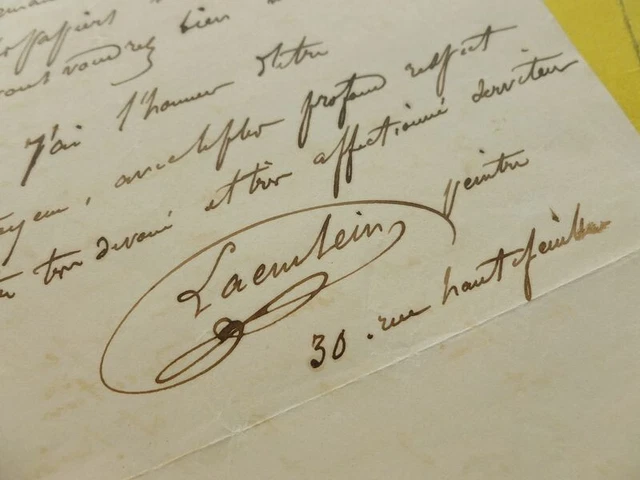 papiers
vous voudrez bien
J'ai l'honneur d'être
avec le plus profond respect
très dévoué et très affectionné serviteur
Laemlein peintre
30. rue hautefeuille